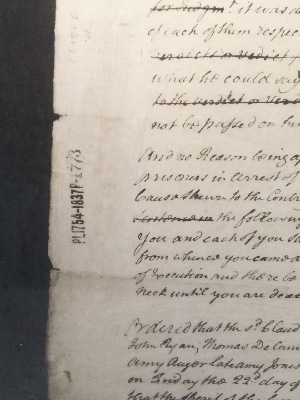 for Judgmt. it was d
of each of them respec
verdict or verdict
what he could say
to the verdict or verd
not be passed on him
And no Reason being a
prisoners in arrest of
Cause shewn to the Contr
sentence in the following
You and each of you sh
from whence you came a
of Execution and there to
neck until you are dead
Ordered that the sd. Claud
John Ryan, Thomas De Can
Amy Augor late Amy Jones
on Friday the 22d. day of
that the Sheriff of the
PL1754-1837P-1773